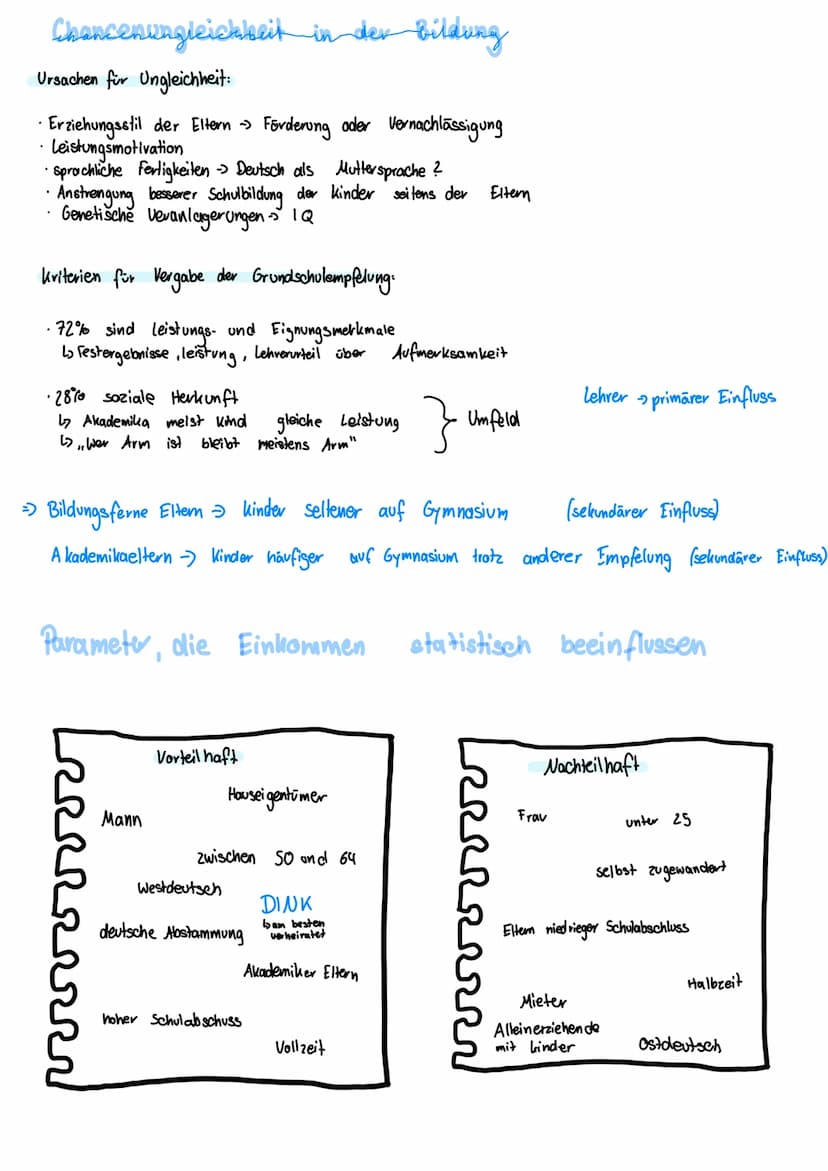 Chancenungleichheit in der Bildung
Ursachen für Ungleichheit:
· Erziehungsstil der Eltern -> Förderung oder Vernachlässigung
· Leistungsmotivation
· sprachliche Fertigkeiten -> Deutsch als Muttersprache?
· Anstrengung besserer Schulbildung der Kinder seitens der Eltern
· Genetische Veranlagerungen -> IQ
Kriterien für Vergabe der Grundschulempfelung:
· 72% sind Leistungs- und Eignungsmerkmale
↳ Testergebnisse, leistung, Lehrerurteil über Aufmerksamkeit
· 28% soziale Herkunft
↳ Akademika meist Kind gleiche Leistung
↳ „Wer Arm ist bleibt meistens Arm"
} Umfeld
Lehrer -> primärer Einfluss
=> Bildungsferne Eltern -> Kinder seltener auf Gymnasium (sekundärer Einfluss)
Akademikaeltern -> Kinder häufiger auf Gymnasium trotz anderer Empfelung (sekundärer Einfluss)
Parameter, die Einkommen statistisch beeinflussen
Vorteilhaft
Hauseigentümer
Mann
zwischen 50 und 64
Westdeutsch
DINK
↳ am besten
verheiratet
deutsche Abstammung
Akademiker Eltern
hoher Schulabschuss
Vollzeit
Nachteilhaft
Frau
unter 25
selbst zugewandert
Eltern niedrieger Schulabschluss
Halbzeit
Mieter
Alleinerziehende
mit kinder
Ostdeutsch